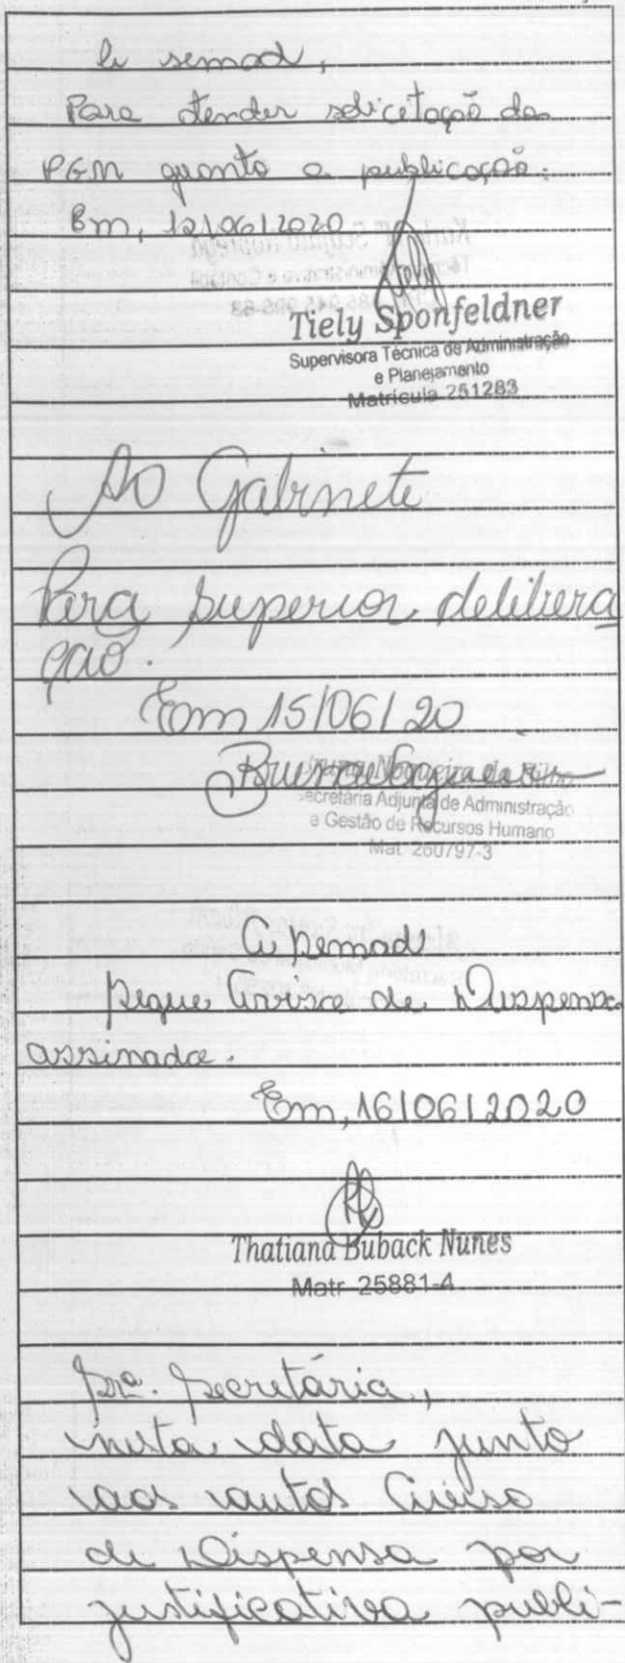 À semad,
Para atender solicitação da
PGM quanto a publicação.
Em, 12/06/2020
Tiely Sponfeldner
Supervisora Técnica de Administração
e Planejamento
Matrícula 251283
Ao Gabinete
Para superior delibera
ção.
Em 15/06/20
Bruna Nogueira da Silva
Secretária Adjunta de Administração
e Gestão de Recursos Humano
Mat. 260797-3
À Semad
Segue Aviso de Dispensa
assinado.
Em, 16/06/2020
Thatiana Buback Nunes
Matr 25881-4
Srª. Secretária,
nesta data junto
aos autos Aviso
de Dispensa por
justificativa publi-